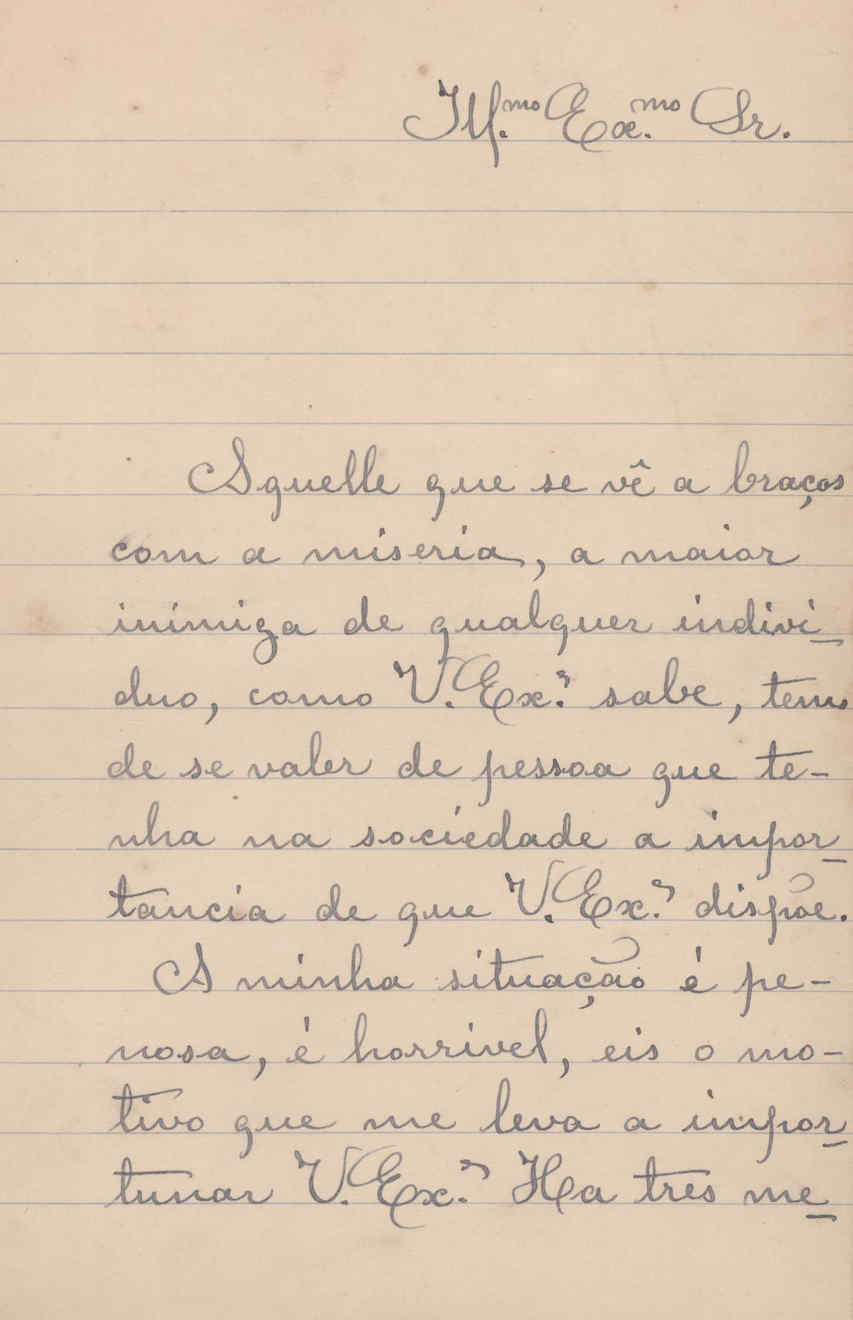 Ill.mo Ex.mo Sr.
Aquelle que se vê a braços
com a miseria, a maior
inimiga de qualquer indivi-
duo, como V. Ex.ª sabe, tem
de se valer de pessoa que te-
nha na sociedade a impor-
tancia de que V. Ex.ª dispõe.
A minha situação é pe-
nosa, é horrivel, eis o mo-
tivo que me leva a impor-
tunar V. Ex.ª Ha tres me-